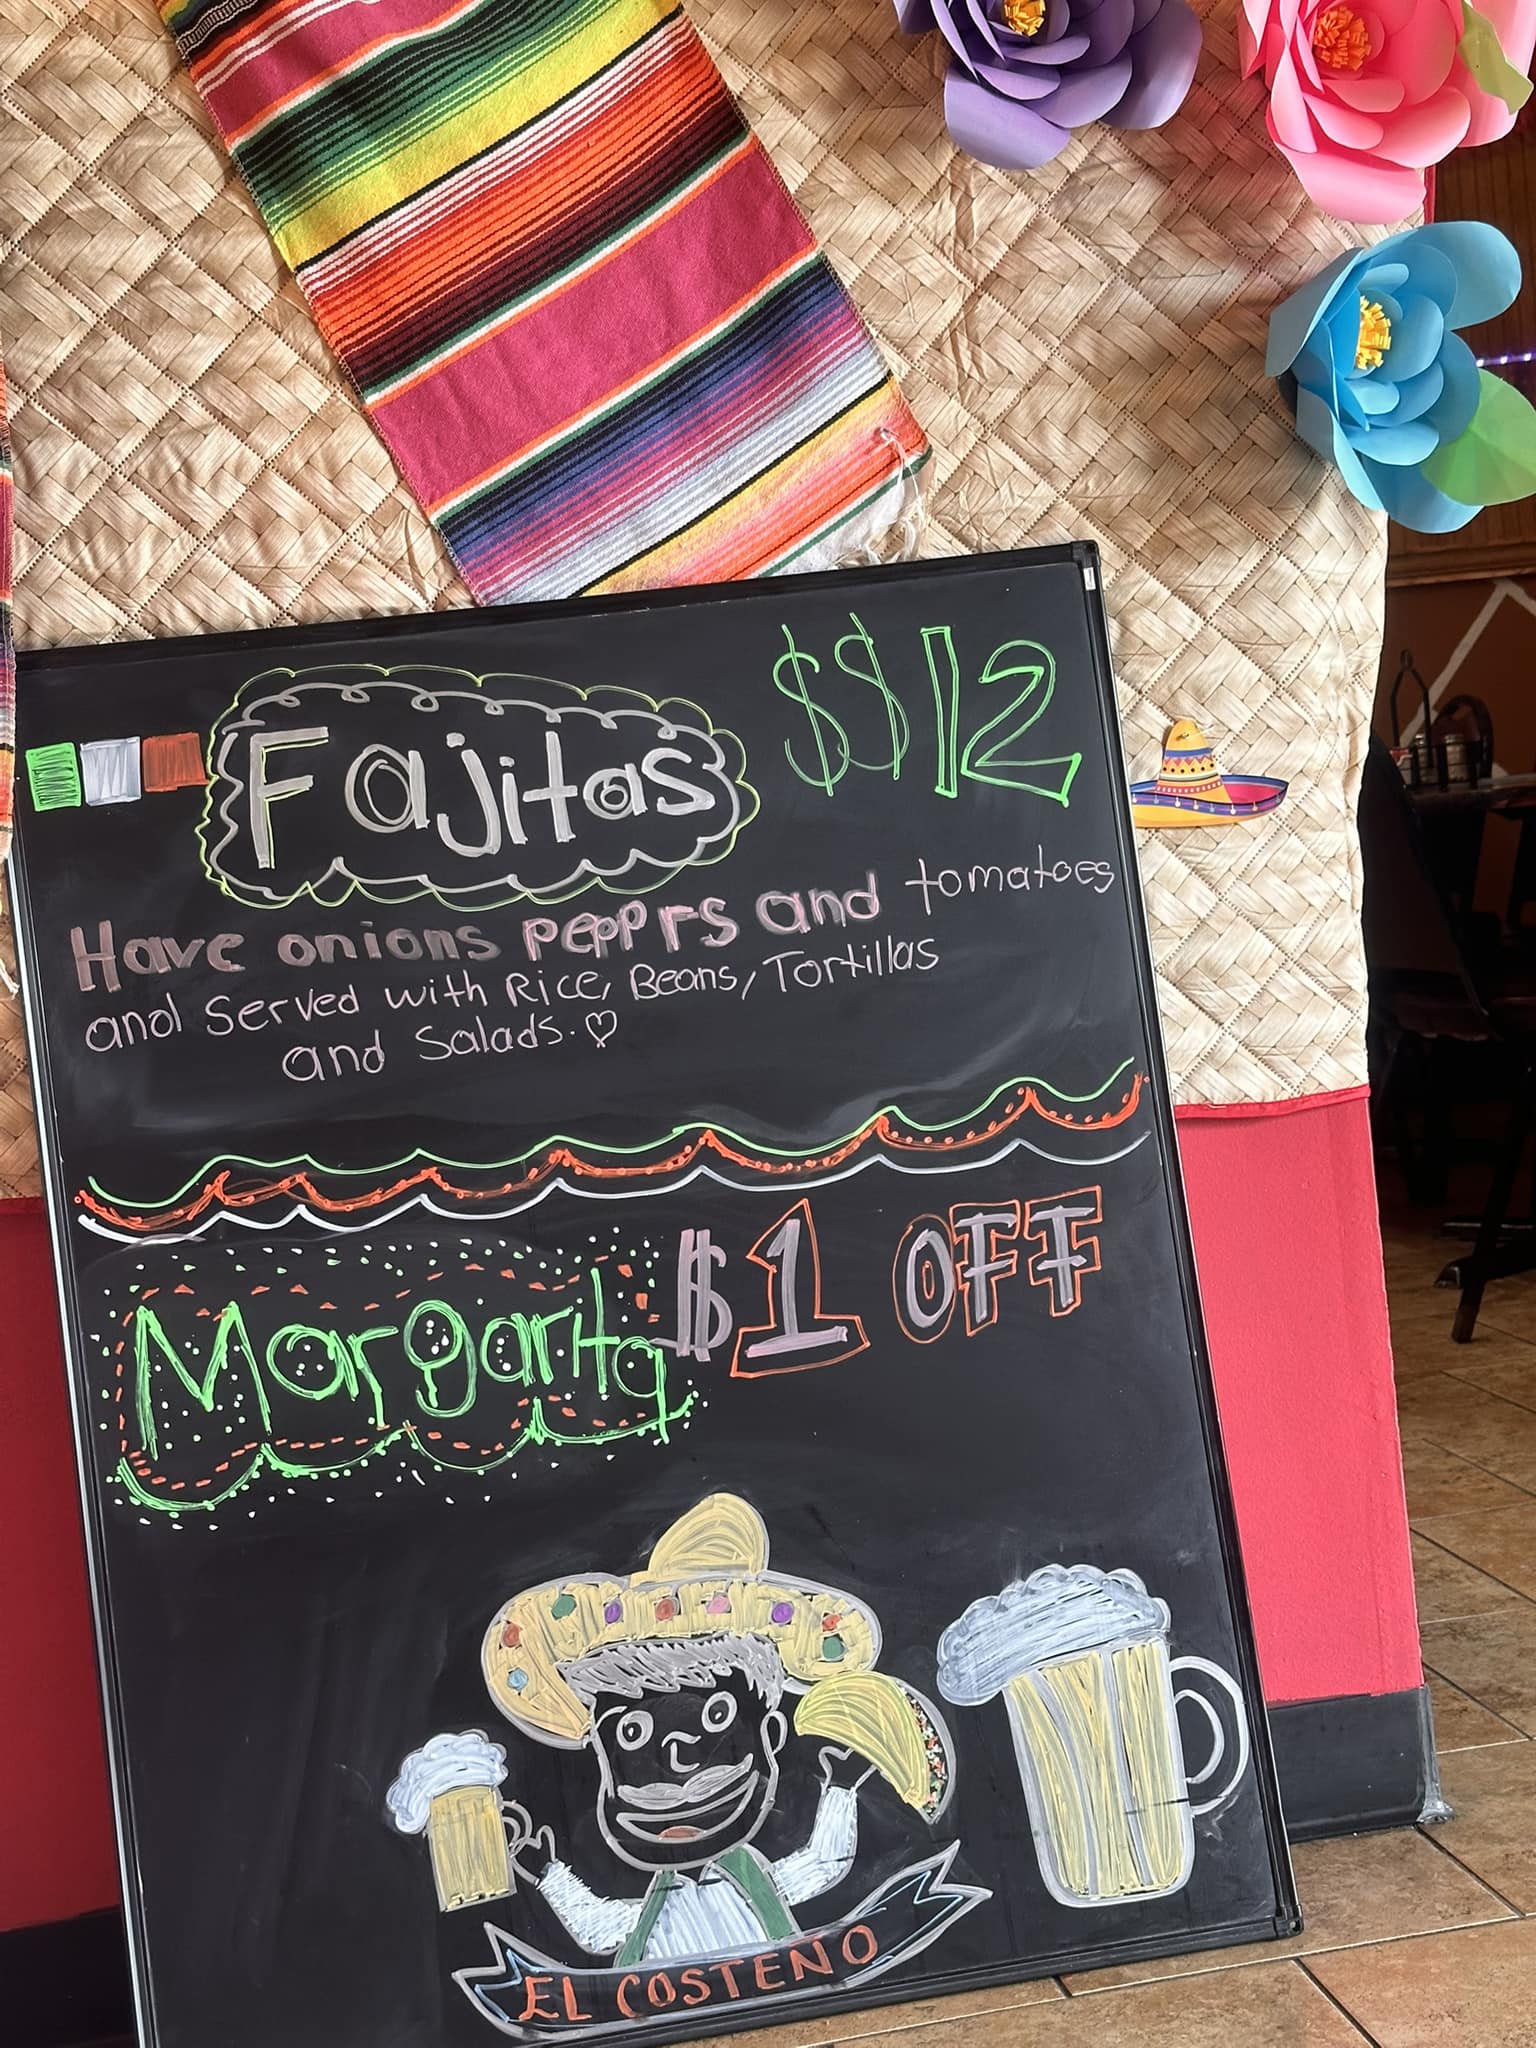 Fajitas $$12
Have onions pepprs and tomatoes
and Served with Rice, Beans, Tortillas
and Salads. ♡
Margarita $1 OFF
EL COSTENO